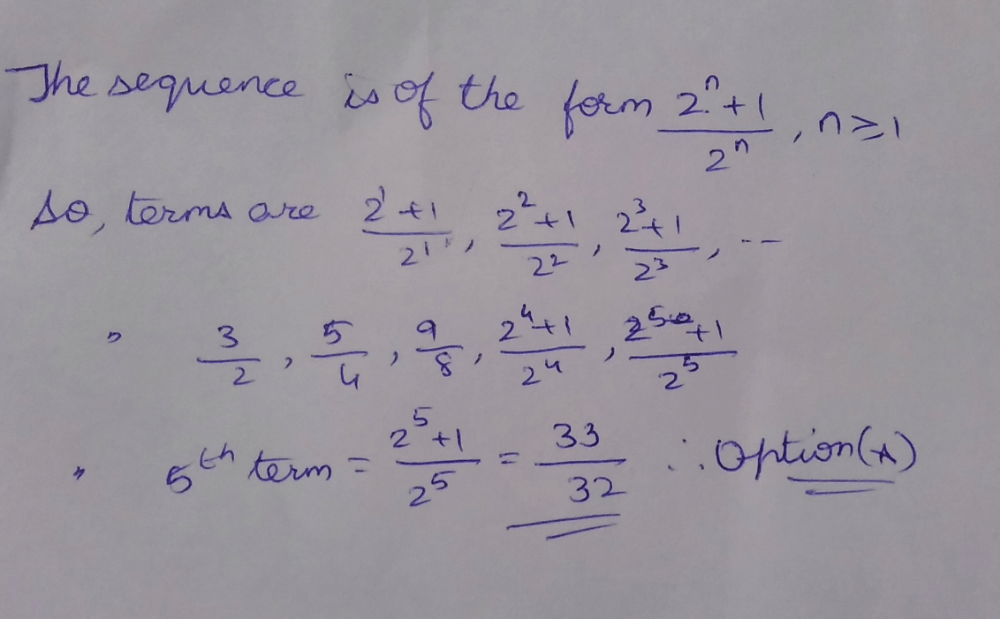 The sequence is of the form (2^n+1)/2^n, n ≥ 1
So, terms are (2^1+1)/2^1, (2^2+1)/2^2, (2^3+1)/2^3, --
" 3/2, 5/4, 9/8, (2^4+1)/2^4, (2^5+1)/2^5
" 5th term = (2^5+1)/2^5 = 33/32 ∴ Option(A)